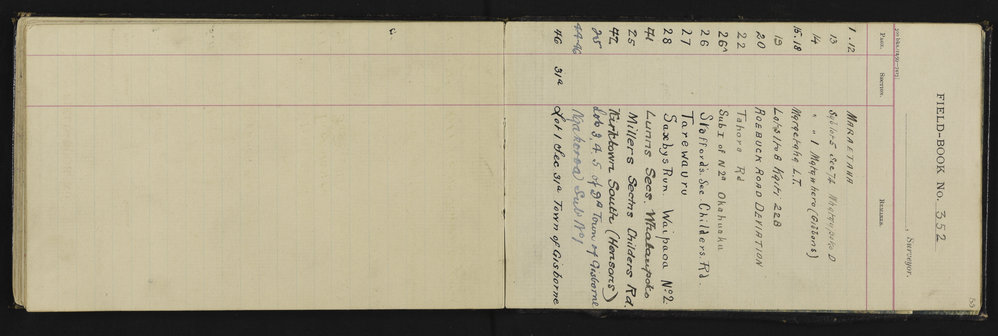 FIELD-BOOK No. 352
, Surveyor.
PAGE. SECTION. REMARKS.
1-12 MARAETAHA
13 Sublot 5 Sec. 74 D
14 " " 1 (Gibbons)
15.18 L.T.
19 Lots 1 to 8 Kaiti 228
20 ROEBUCK ROAD DEVIATION
22 Tahora Rd
26A Sub I of No 2a Okahuatiu
26 Stafford's Sec. Childers. Rd.
27 Tarewauru
28 Saxbys Run. Waipaoa No 2
41 Lunns Secs. Whataupoko
25 Millers Sectns Childers Rd.
42 Kirktown South (Hensons)
25 Lots 3, 4, 5 of Town of Gisborne
44-46 Ngakoroa Sub No 1
46 31a Lot 1 Sec 31a Town of Gisborne